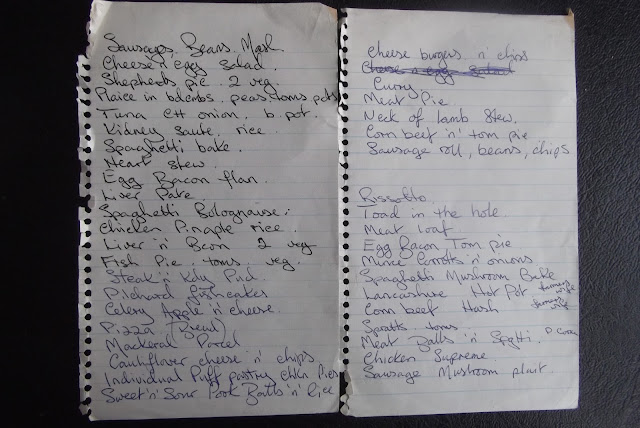 Sausages, Beans. Mash
Cheese n' Egg Salad.
Shepherds pie. 2 veg.
Plaice in bdcmbs. peas. toms pots
Tuna Ch onion. b. pot.
Kidney Saute. rice.
Spaghetti bake.
Heart Stew.
Egg Bacon flan.
Liver Pate.
Spaghetti Bolognause.
Chicken Pinaple rice.
Liver 'n' Bcon 2 veg
Fish Pie. toms. veg.
Steak 'n' Kdy Pud.
Pilchard fishcakes
Celery Apple 'n' cheese.
Pizza (Bread)
Mackeral Parcel
Cauliflower cheese 'n' chips.
Individual Puff pastry Chkn Pies
Sweet 'n' Sour Pork Balls 'n' Rice
Cheese burgers 'n' chips
Cheese n egg Salad
Curry
Meat Pie
Neck of lamb Stew.
Corn beef 'n' tom pie
Sausage roll, beans, chips
Rissolto.
Toad in the hole.
Meat loaf.
Egg Bacon Tom pie
Mince Carrotts 'n' onions
Spaghetti Mushroom Bake
Lancashire Hot Pot farmers wife
Corn beef Hash farmers wife
Spratts toms
Meat Balls 'n' Spgtti.
Chicken Supreme.
Sausage Mushroom plait.